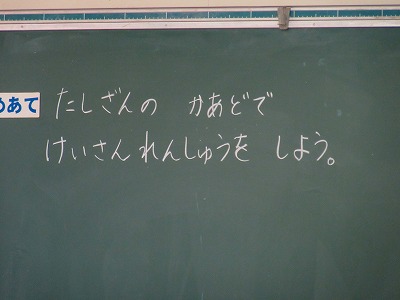 めあて たしざんの かあどで
けいさんれんしゅうを しよう。